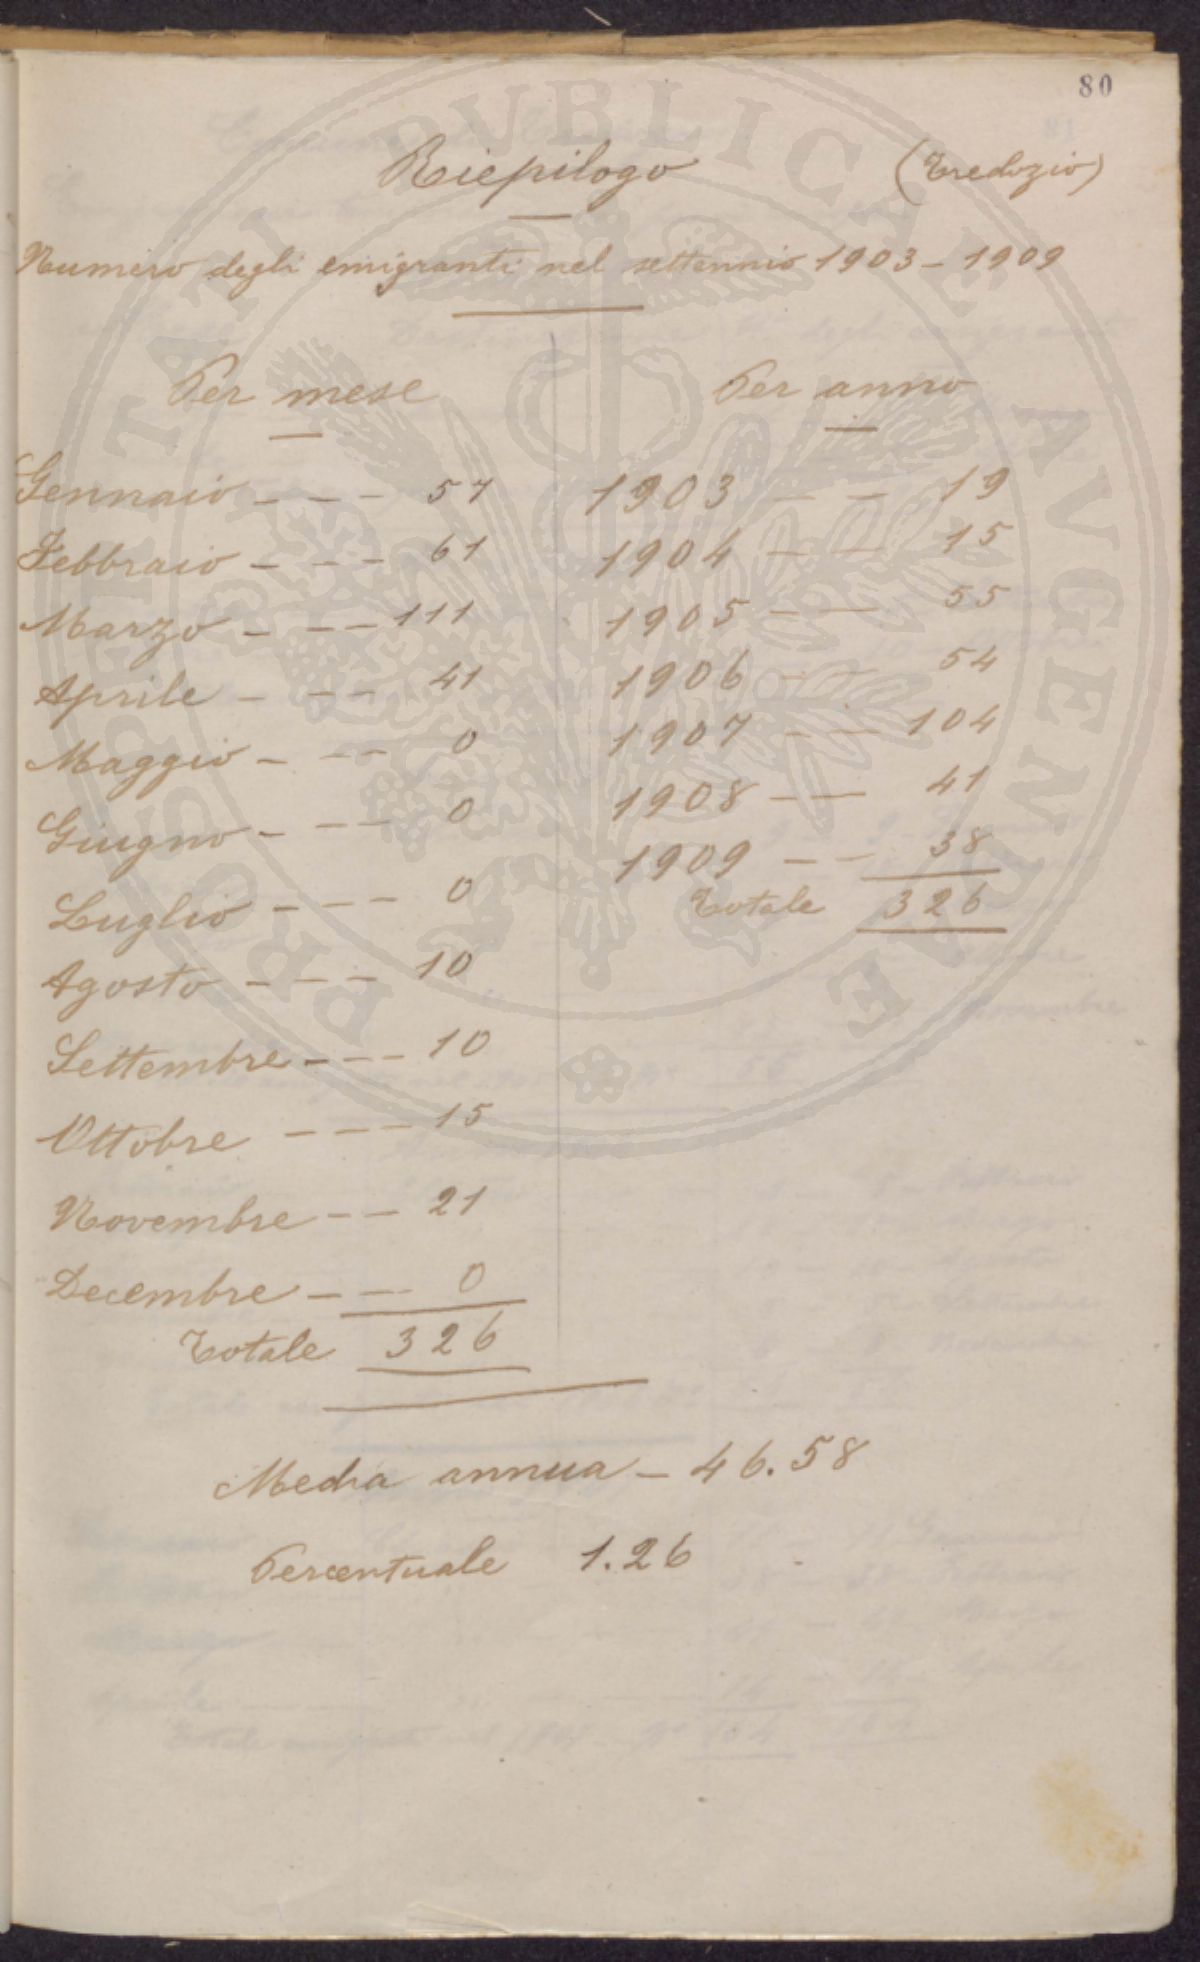 80
Riepilogo (Tredozio)
Numero degli emigranti nel settennio 1903 - 1909
Per mese
Gennaio - - - 57
Febbraio - - - 61
Marzo - - - 111
Aprile - - - 41
Maggio - - - 0
Giugno - - - 0
Luglio - - - 0
Agosto - - - 10
Settembre - - - 10
Ottobre - - - 15
Novembre - - 21
Decembre - - 0
Totale 326
Per anno
1903 - - 19
1904 - - 15
1905 - - 55
1906 - - 54
1907 - - 104
1908 - - 41
1909 - - 38
Totale 326
Media annua - 46.58
Percentuale 1.26
PROSPERITATI PVBLICAE AVGENDAE